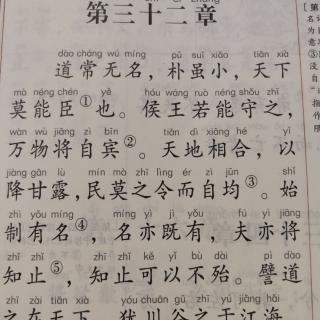 第三十二章
dào cháng wú míng pǔ suī xiǎo tiān xià
道常无名，朴虽小，天下
mò néng chén yě hóu wáng ruò néng shǒu zhī
莫能臣①也。侯王若能守之，
wàn wù jiāng zì bīn tiān dì xiāng hé yǐ
万物将自宾②。天地相合，以
jiàng gān lù mín mò zhī lìng ér zì jūn shǐ
降甘露，民莫之令而自均③。始
zhì yǒu míng míng yì jì yǒu fú yì jiāng
制有名④，名亦既有，夫亦将
zhī zhǐ zhī zhǐ kě yǐ bù dài pì dào
知止⑤，知止可以不殆。譬道
zhī zài tiān xià yóu chuān gǔ zhī yú jiāng hǎi
之在天下，犹川谷之于江海